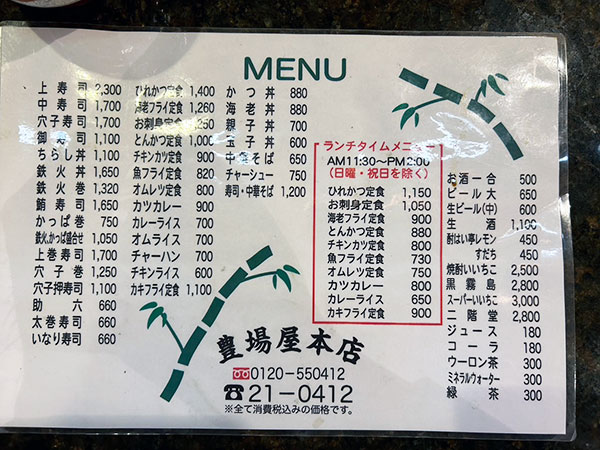 MENU
上寿司 2,300
中寿司 1,700
穴子寿司 1,700
御寿司 1,100
ちらし丼 1,100
鉄火丼 1,650
鉄火巻 1,320
鯖寿司 1,650
かっぱ巻 750
鉄火,かっぱ盛合せ 1,050
上巻寿司 1,700
穴子巻 1,250
穴子押寿司 1,100
助六 660
太巻寿司 660
いなり寿司 660
ひれかつ定食 1,400
海老フライ定食 1,260
お刺身定食 1,250
とんかつ定食 1,000
チキンカツ定食 900
魚フライ定食 820
オムレツ定食 820
カツカレー 900
カレーライス 700
オムライス 700
チャーハン 700
チキンライス 700
カキフライ定食 1,100
かつ丼 880
海老丼 880
親子丼 700
玉子丼 600
中華そば 650
チャーシュー 750
寿司・中華そば 1,200
ランチタイムメニュー
AM11:30～PM2:00
(日曜・祝日を除く)
ひれかつ定食 1,150
お刺身定食 1,050
海老フライ定食 900
とんかつ定食 880
チキンカツ定食 800
魚フライ定食 730
オムレツ定食 750
カツカレー 800
カレーライス 650
カキフライ定食 900
お酒一合 500
ビール大 650
生ビール(中) 600
生酒 1,100
酎はい亭レモン 450
すだち 450
焼酎いいちこ 2,500
黒霧島 2,800
スーパーいいちこ 3,000
二階堂 2,800
ジュース 180
コーラ 180
ウーロン茶 300
ミネラルウォーター 300
緑茶 300
豊場屋本店
0120-550412
☎21-0412
※全て消費税込みの価格です。